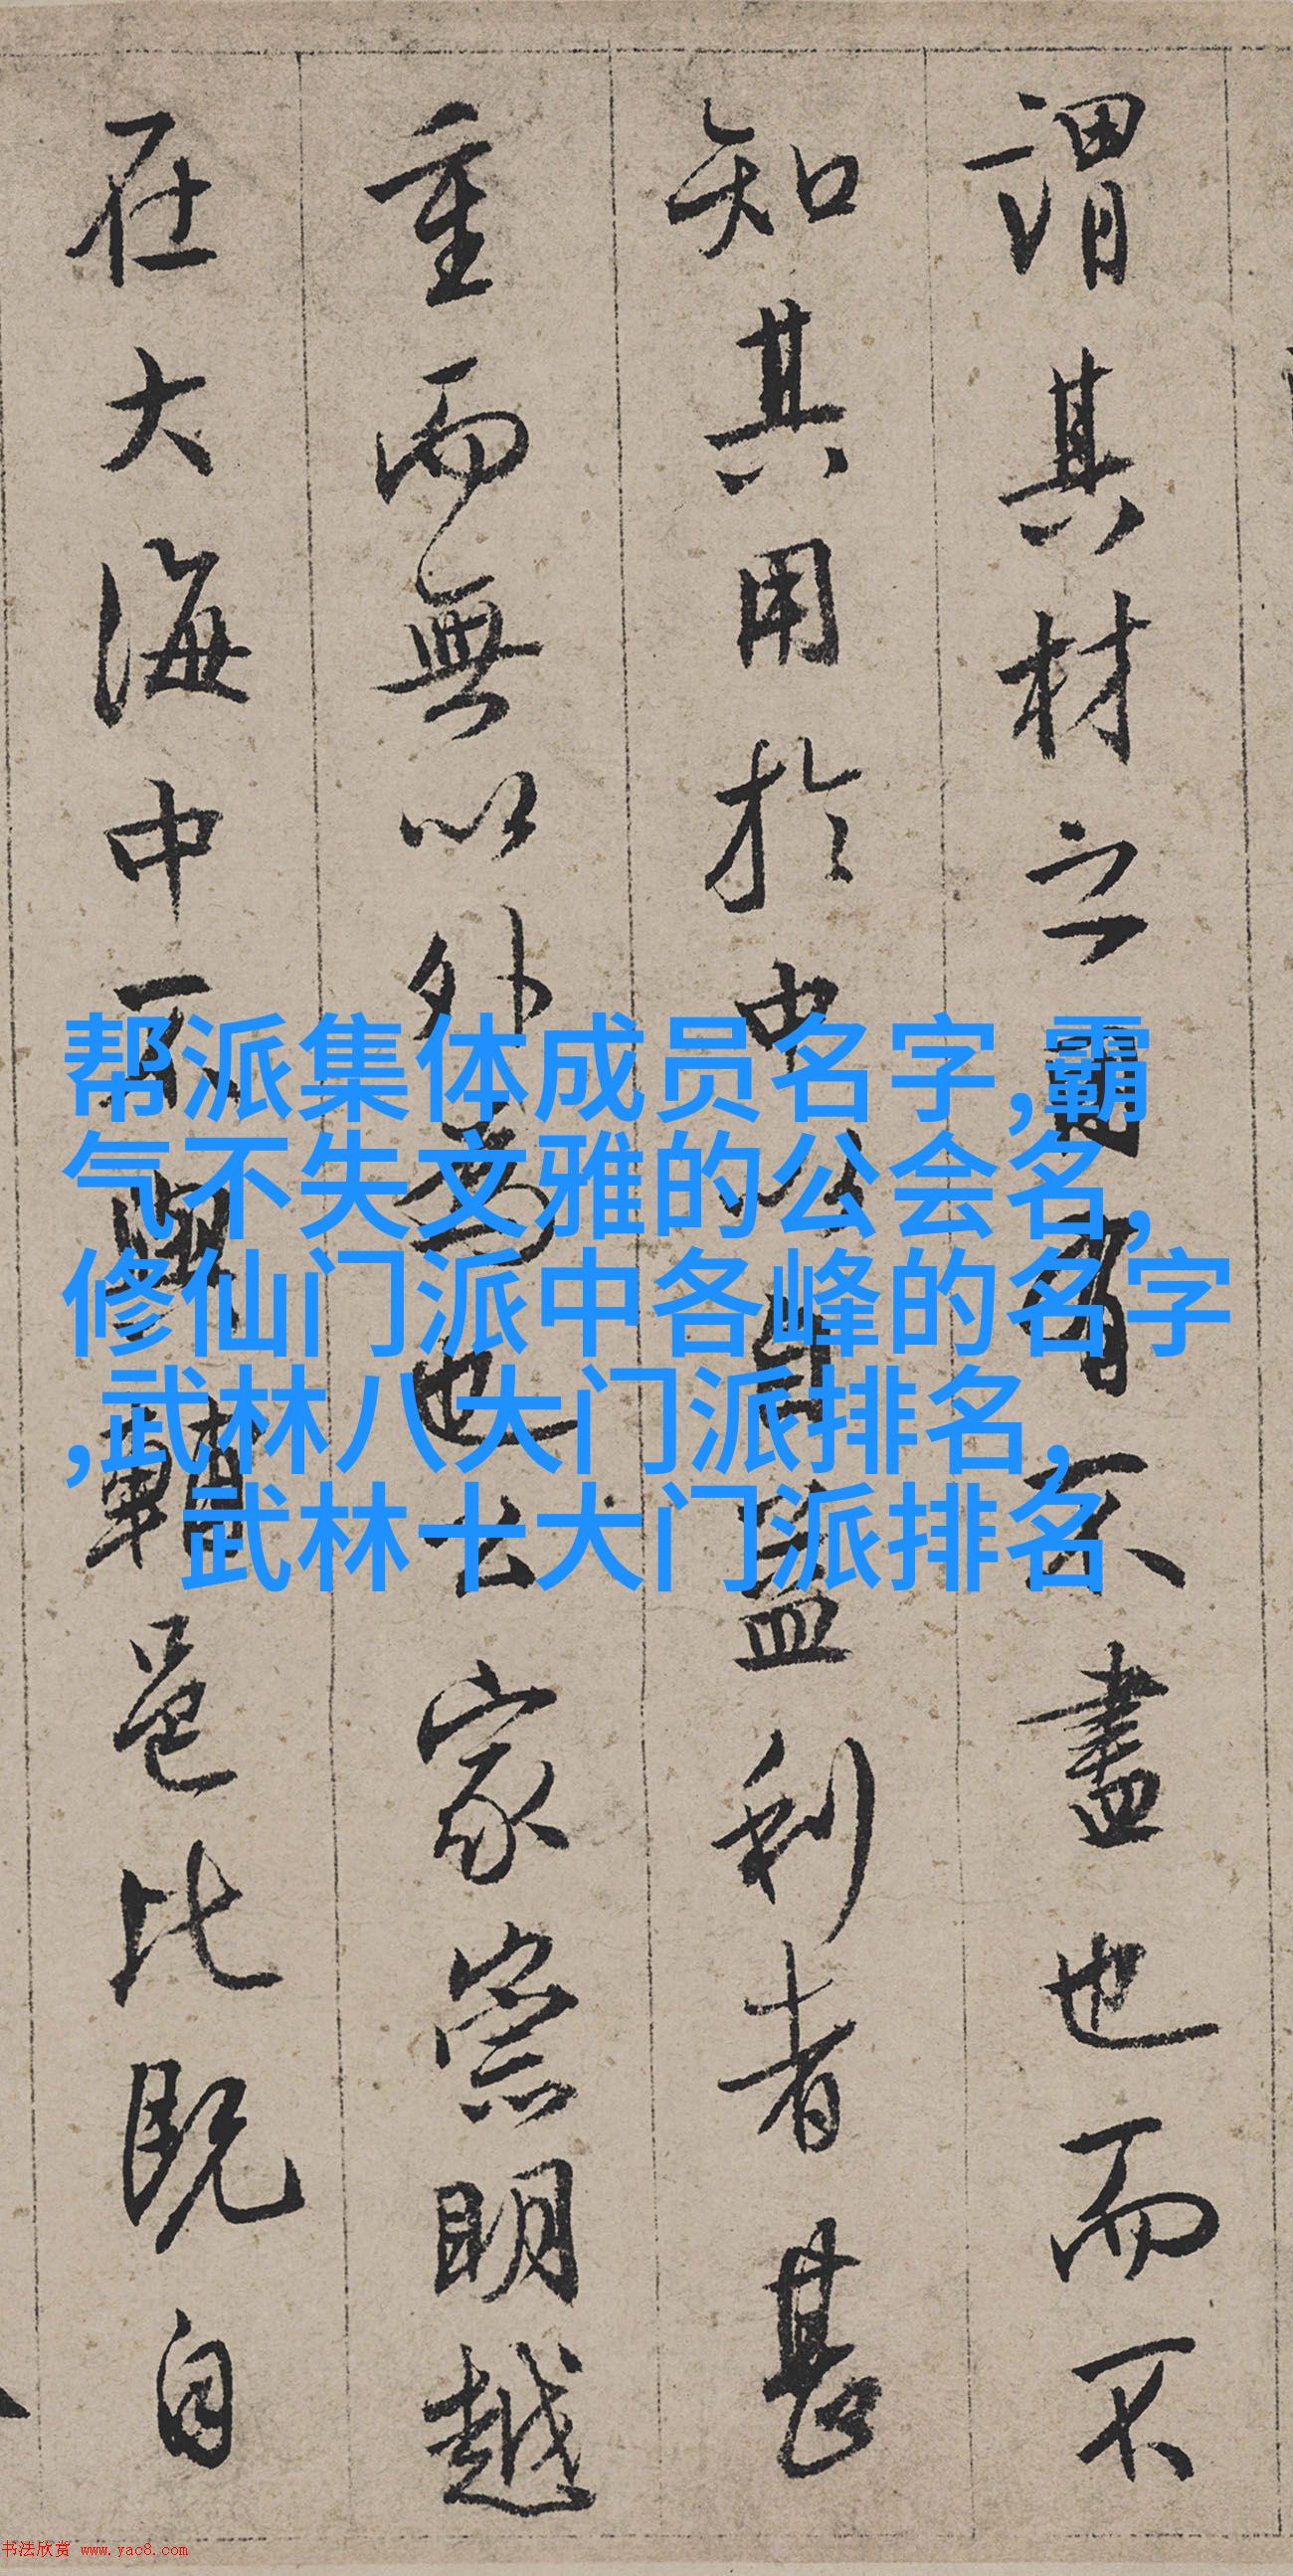 謂其材之有不盡也而不
知其用於中益利者甚
重而無以外為也士家崇明越
在大海中不與輔邑比既自
帮派集体成员名字,霸
气不失文雅的公会名,
修仙门派中各峰的名字
,武林八大门派排名,
武林十大门派排名
书法欣赏 www.yac8.com